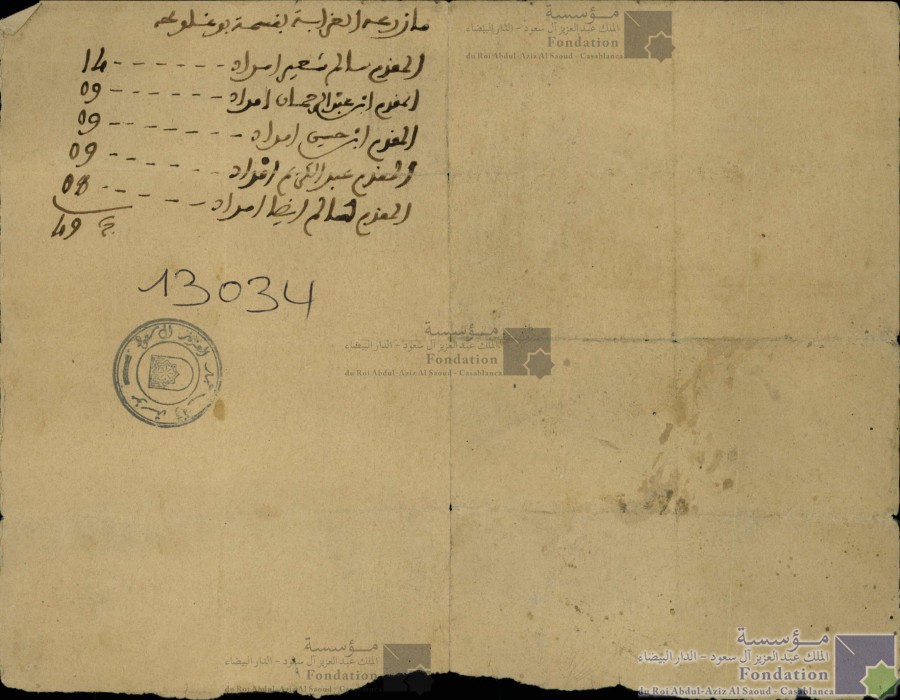 مؤسسة
الملك عبد العزيز آل سعود - الدار البيضاء
Fondation
du Roi Abdul-Aziz Al Saoud - Casablanca
ما زرعه الغرابة بقسمة
المقدم سالم شعير امداد - - - - - - 14
المقدم ابن عبد الرحمان امداد - - - - - - 09
المقدم ابن حسين امداد - - - - - - 09
المقدم عبد الكريم امداد - - - - - - 09
المقدم سالم ايضا امداد - - - - - - 08
49
13034
مؤسسة
الملك عبد العزيز آل سعود - الدار البيضاء
Fondation
du Roi Abdul-Aziz Al Saoud - Casablanca
عبد العزيز آل سعود
مؤسسة
مؤسسة
الملك عبد العزيز آل سعود - الدار البيضاء
Fondation
du Roi Abdul-Aziz Al Saoud - Casablanca
مؤسسة
الملك عبد العزيز آل سعود - الدار البيضاء
Fondation
du Roi Abdul-Aziz Al Saoud - Casablanca